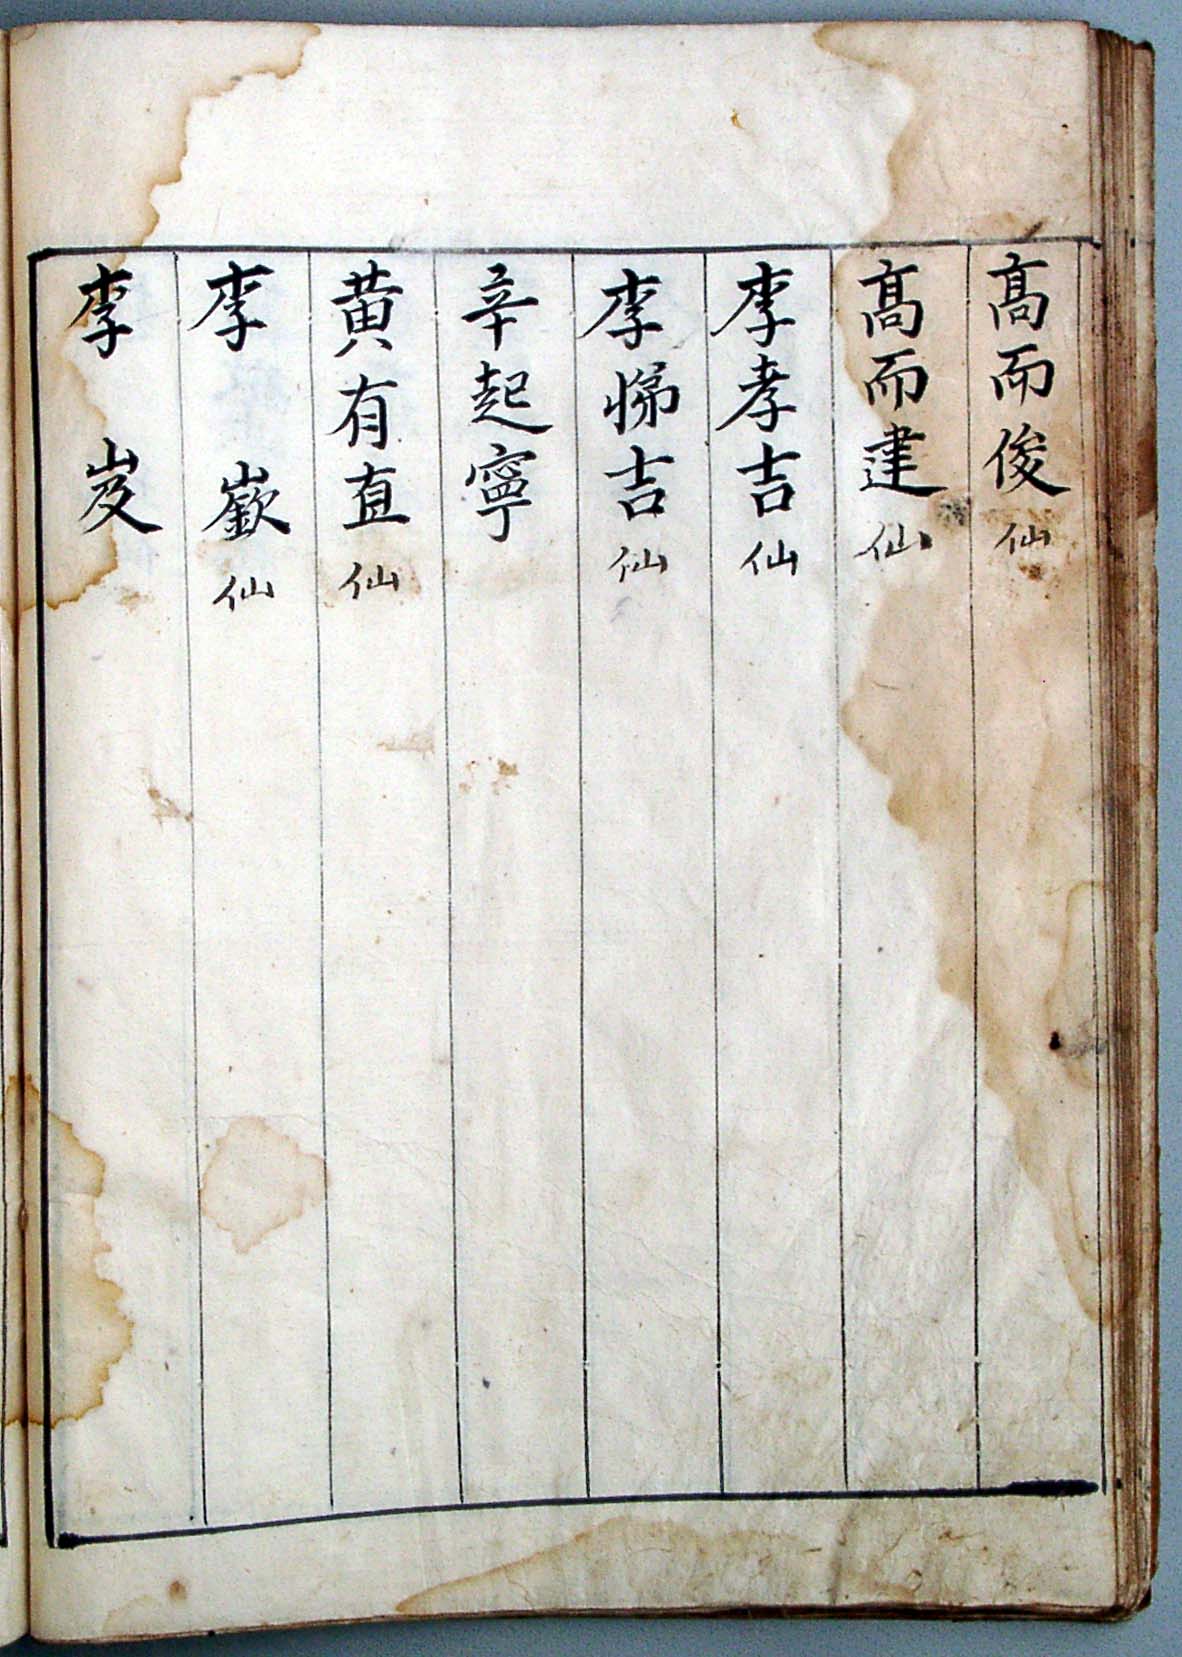 高而俊仙
高而建仙
李孝吉仙
李悌吉仙
辛起寧
黃有直仙
李嶔仙
李岌